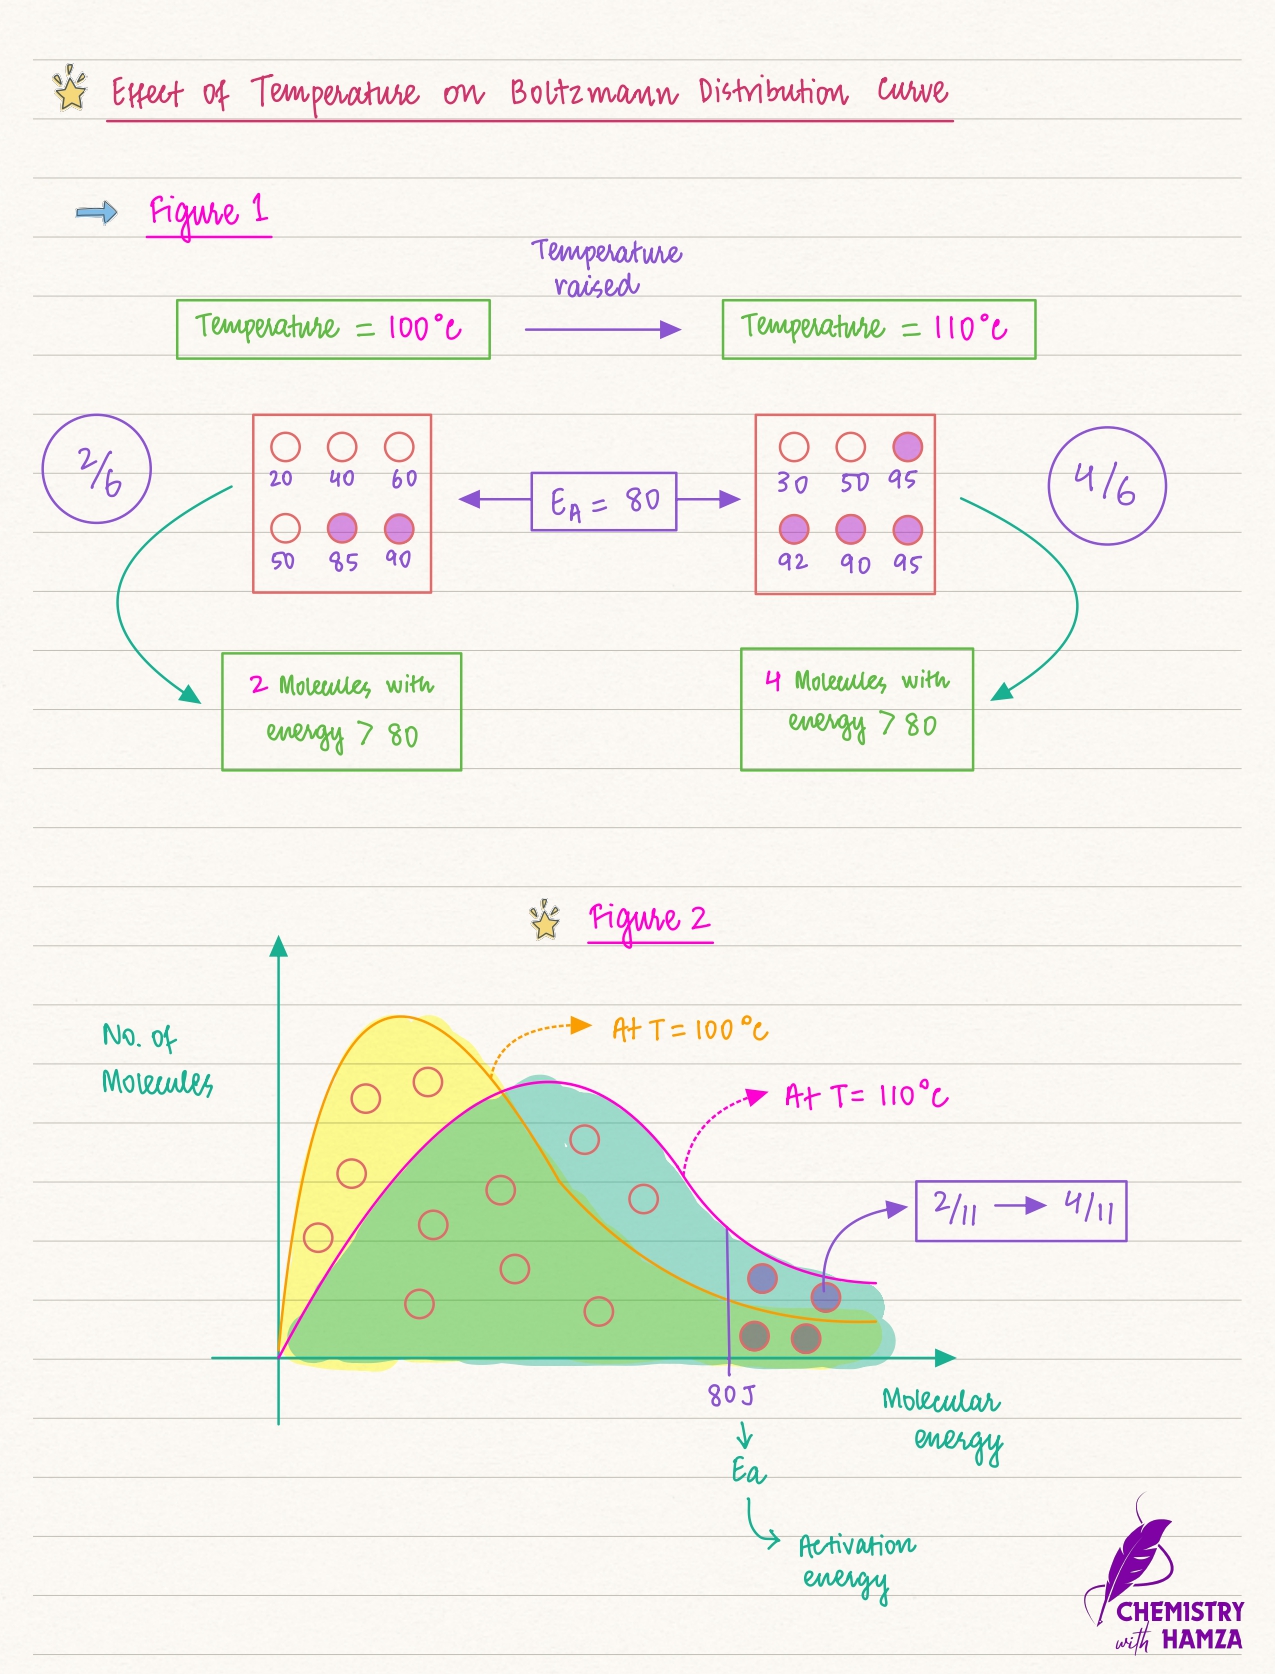 Effect of Temperature on Boltzmann Distribution Curve
Figure 1
Temperature
raised
Temperature = 100°C
Temperature = 110°C
2/6
20 40 60
50 85 90
EA = 80
30 50 95
92 90 95
4/6
2 Molecules with
energy > 80
4 Molecules with
energy > 80
Figure 2
No. of
Molecules
At T = 100°C
At T = 110°C
2/11 → 4/11
80J
Molecular
energy
Ea
Activation
energy
CHEMISTRY
with HAMZA